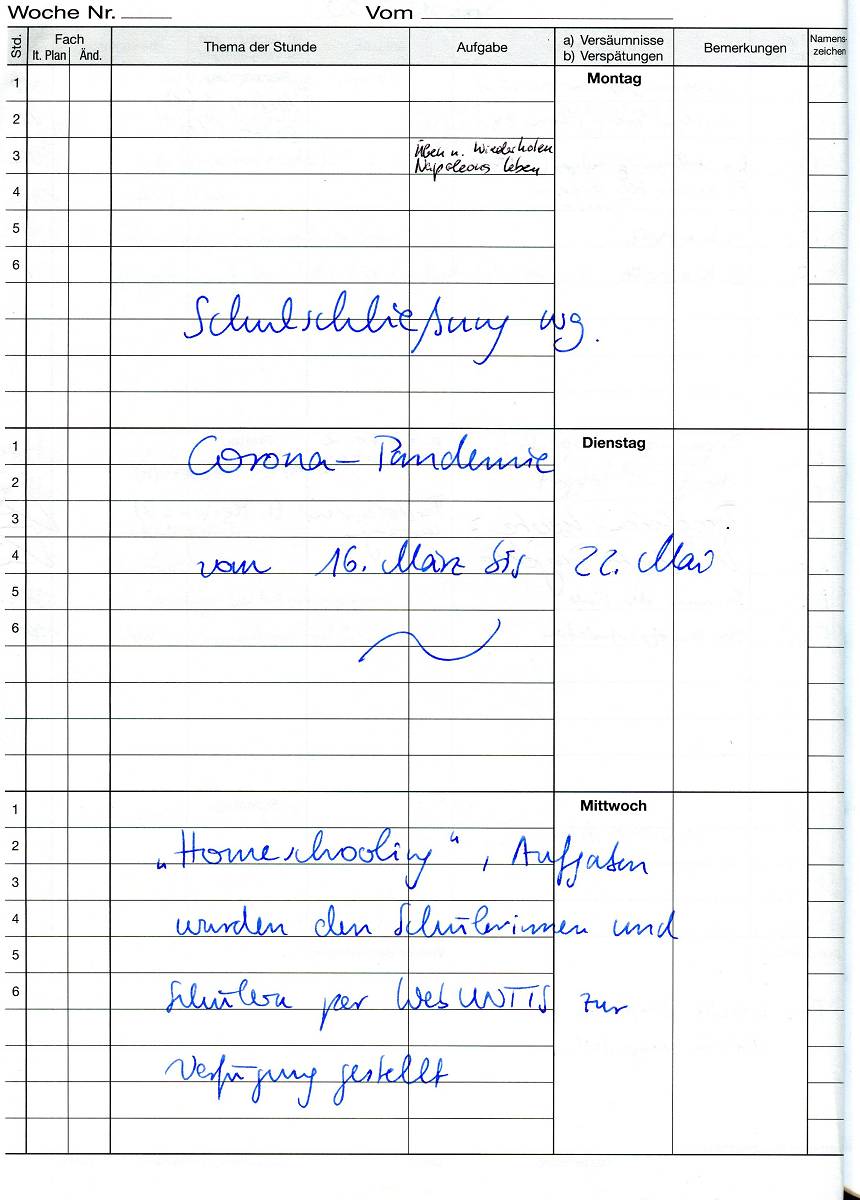 Woche Nr. Vom
Std. Fach Thema der Stunde Aufgabe a) Versäumnisse Bemerkungen Namens-
lt. Plan Änd. b) Verspätungen zeichen
1 Montag
2
3 Üben u. Wiederholen
Napoleons Leben
4
5
6
Schulschließung wg.
1 Dienstag
Corona-Pandemie
2
3
4 vom 16. März bis 22. Mai
5
6
1 Mittwoch
2 „Homeschooling“, Aufgaben
3
4 wurden den Schülerinnen und
5
6 Schülern per WebUNTIS zur
Verfügung gestellt